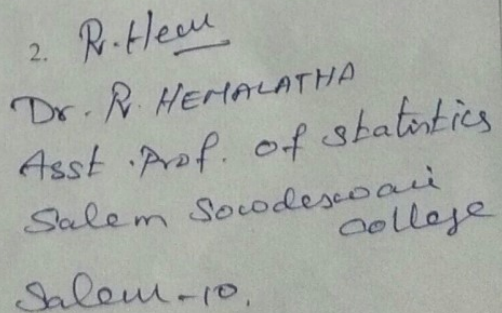 2. R. Hem
Dr. R. HEMALATHA
Asst. Prof. of statistics
Salem Sowdeswari
college
Salem-10.